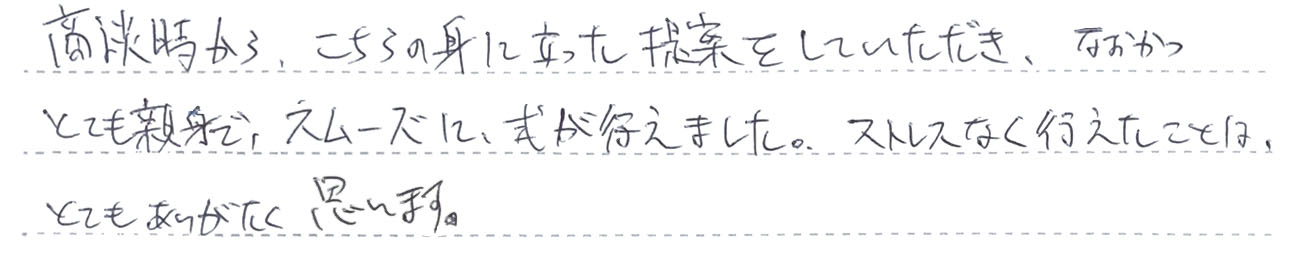 商談時から、こちらの身に立った提案をしていただき、なおかつ
とても親身で、スムーズに、式が行えました。ストレスなく行えたことは、
とてもありがたく思います。